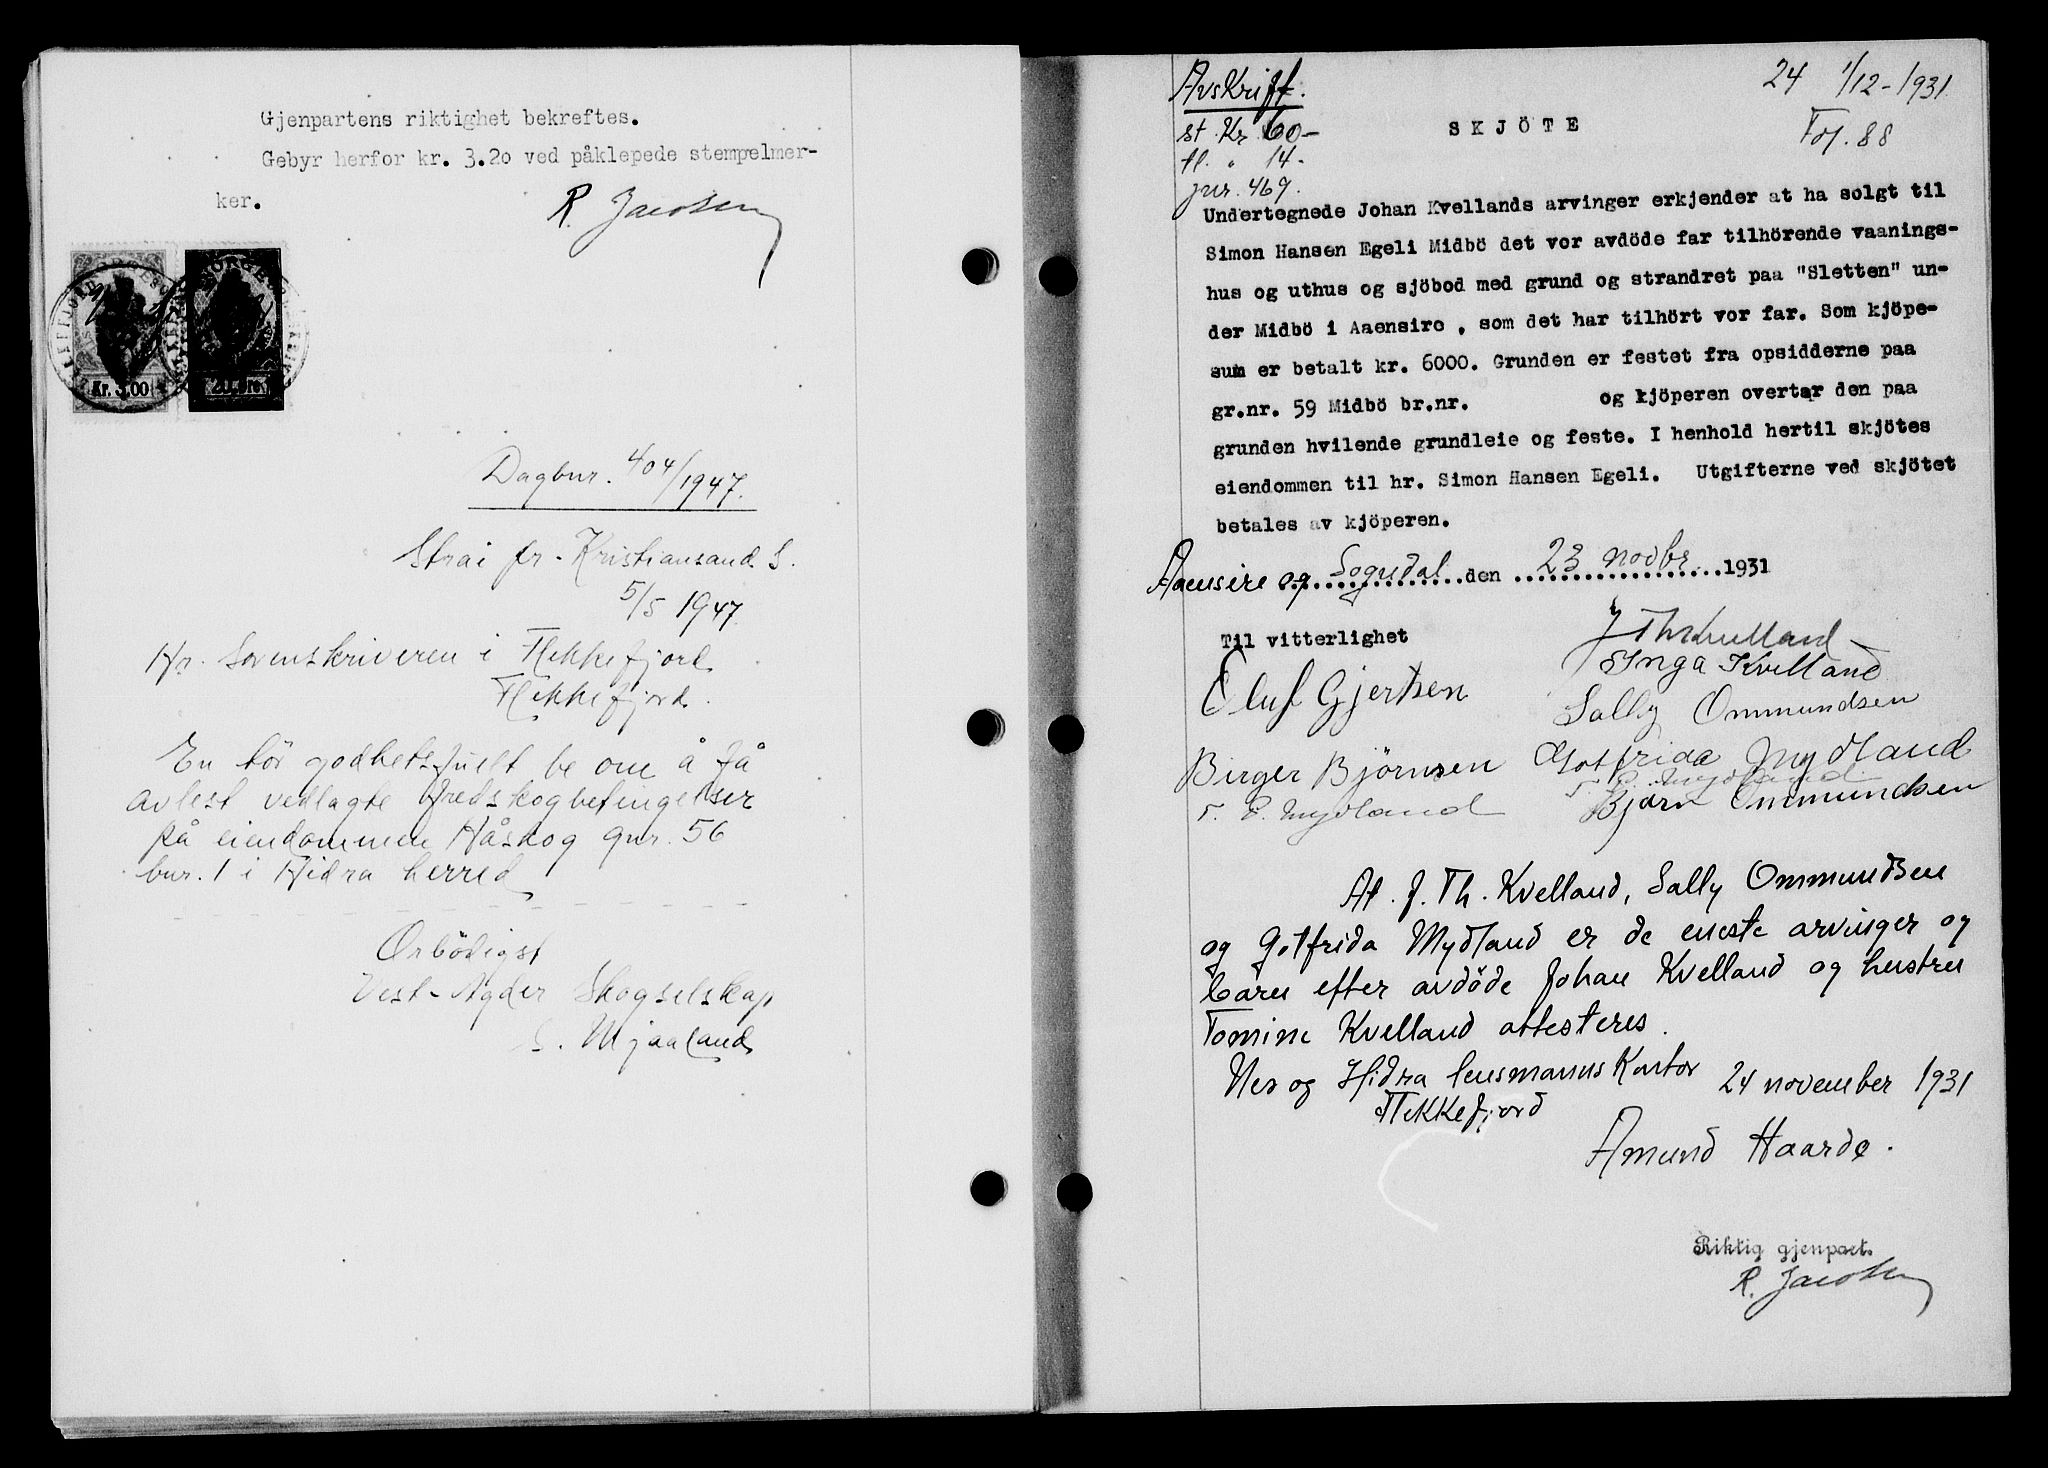 Gjenpartens riktighet bekreftes.
Gebyr herfor kr. 3.20 ved påklepede stempelmer-
ker.
R. Jacobsen
Kr. 3.00
20 øre
Dagbnr. 404/1947.
Strai pr. Kristiansand S.
5/5 1947
Hr. Sorenskriveren i Flekkefjord
Flekkefjord.
En tør godhetsfullt be om å få
avlest vedlagte fredskogbetingelser
på eiendommen Håskog gnr. 56
bnr. 1 i Hidra herred
Ærbödigst
Vest-Agder Skogselskap
S. Mjaaland
Avskrift.
24 1/12-1931
st. Kr. 60-
SKJÖTE
Fol. 88
tl. " 14-
jnr. 469.
Undertegnede Johan Kvellands arvinger erkjender at ha solgt til
Simon Hansen Egeli Midbö det vor avdöde far tilhörende vaanings-
hus og uthus og sjöbod med grund og strandret paa "Sletten" un-
der Midbö i Aaensire , som det har tilhört vor far. Som kjöpe-
sum er betalt kr. 6000. Grunden er festet fra opsidderne paa
gr.nr. 59 Midbö br.nr. og kjöperen overtar den paa
grunden hvilende grundleie og feste. I henhold hertil skjötes
eiendommen til hr. Simon Hansen Egeli. Utgifterne ved skjötet
betales av kjöperen.
Aaensire og Sogndal den 23 novbr 1931
Til vitterlighet
J Th Kvelland
Inga Kvelland
Oluf Gjertsen
Sally Ommundsen
Birger Björnsen
Gotfrida Mydland
T. E. Mydland
T. E. Mydland
Björn Ommundsen
At J. Th. Kvelland, Sally Ommundsen
og Gotfrida Mydland er de eneste arvinger og
barn efter avdöde Johan Kvelland og hustru
Tomine Kvelland attesteres.
Nes og Hidra lensmannskontor 24 november 1931
Flekkefjord
Amund Haarde.
Riktig gjenpart.
R. Jacobsen